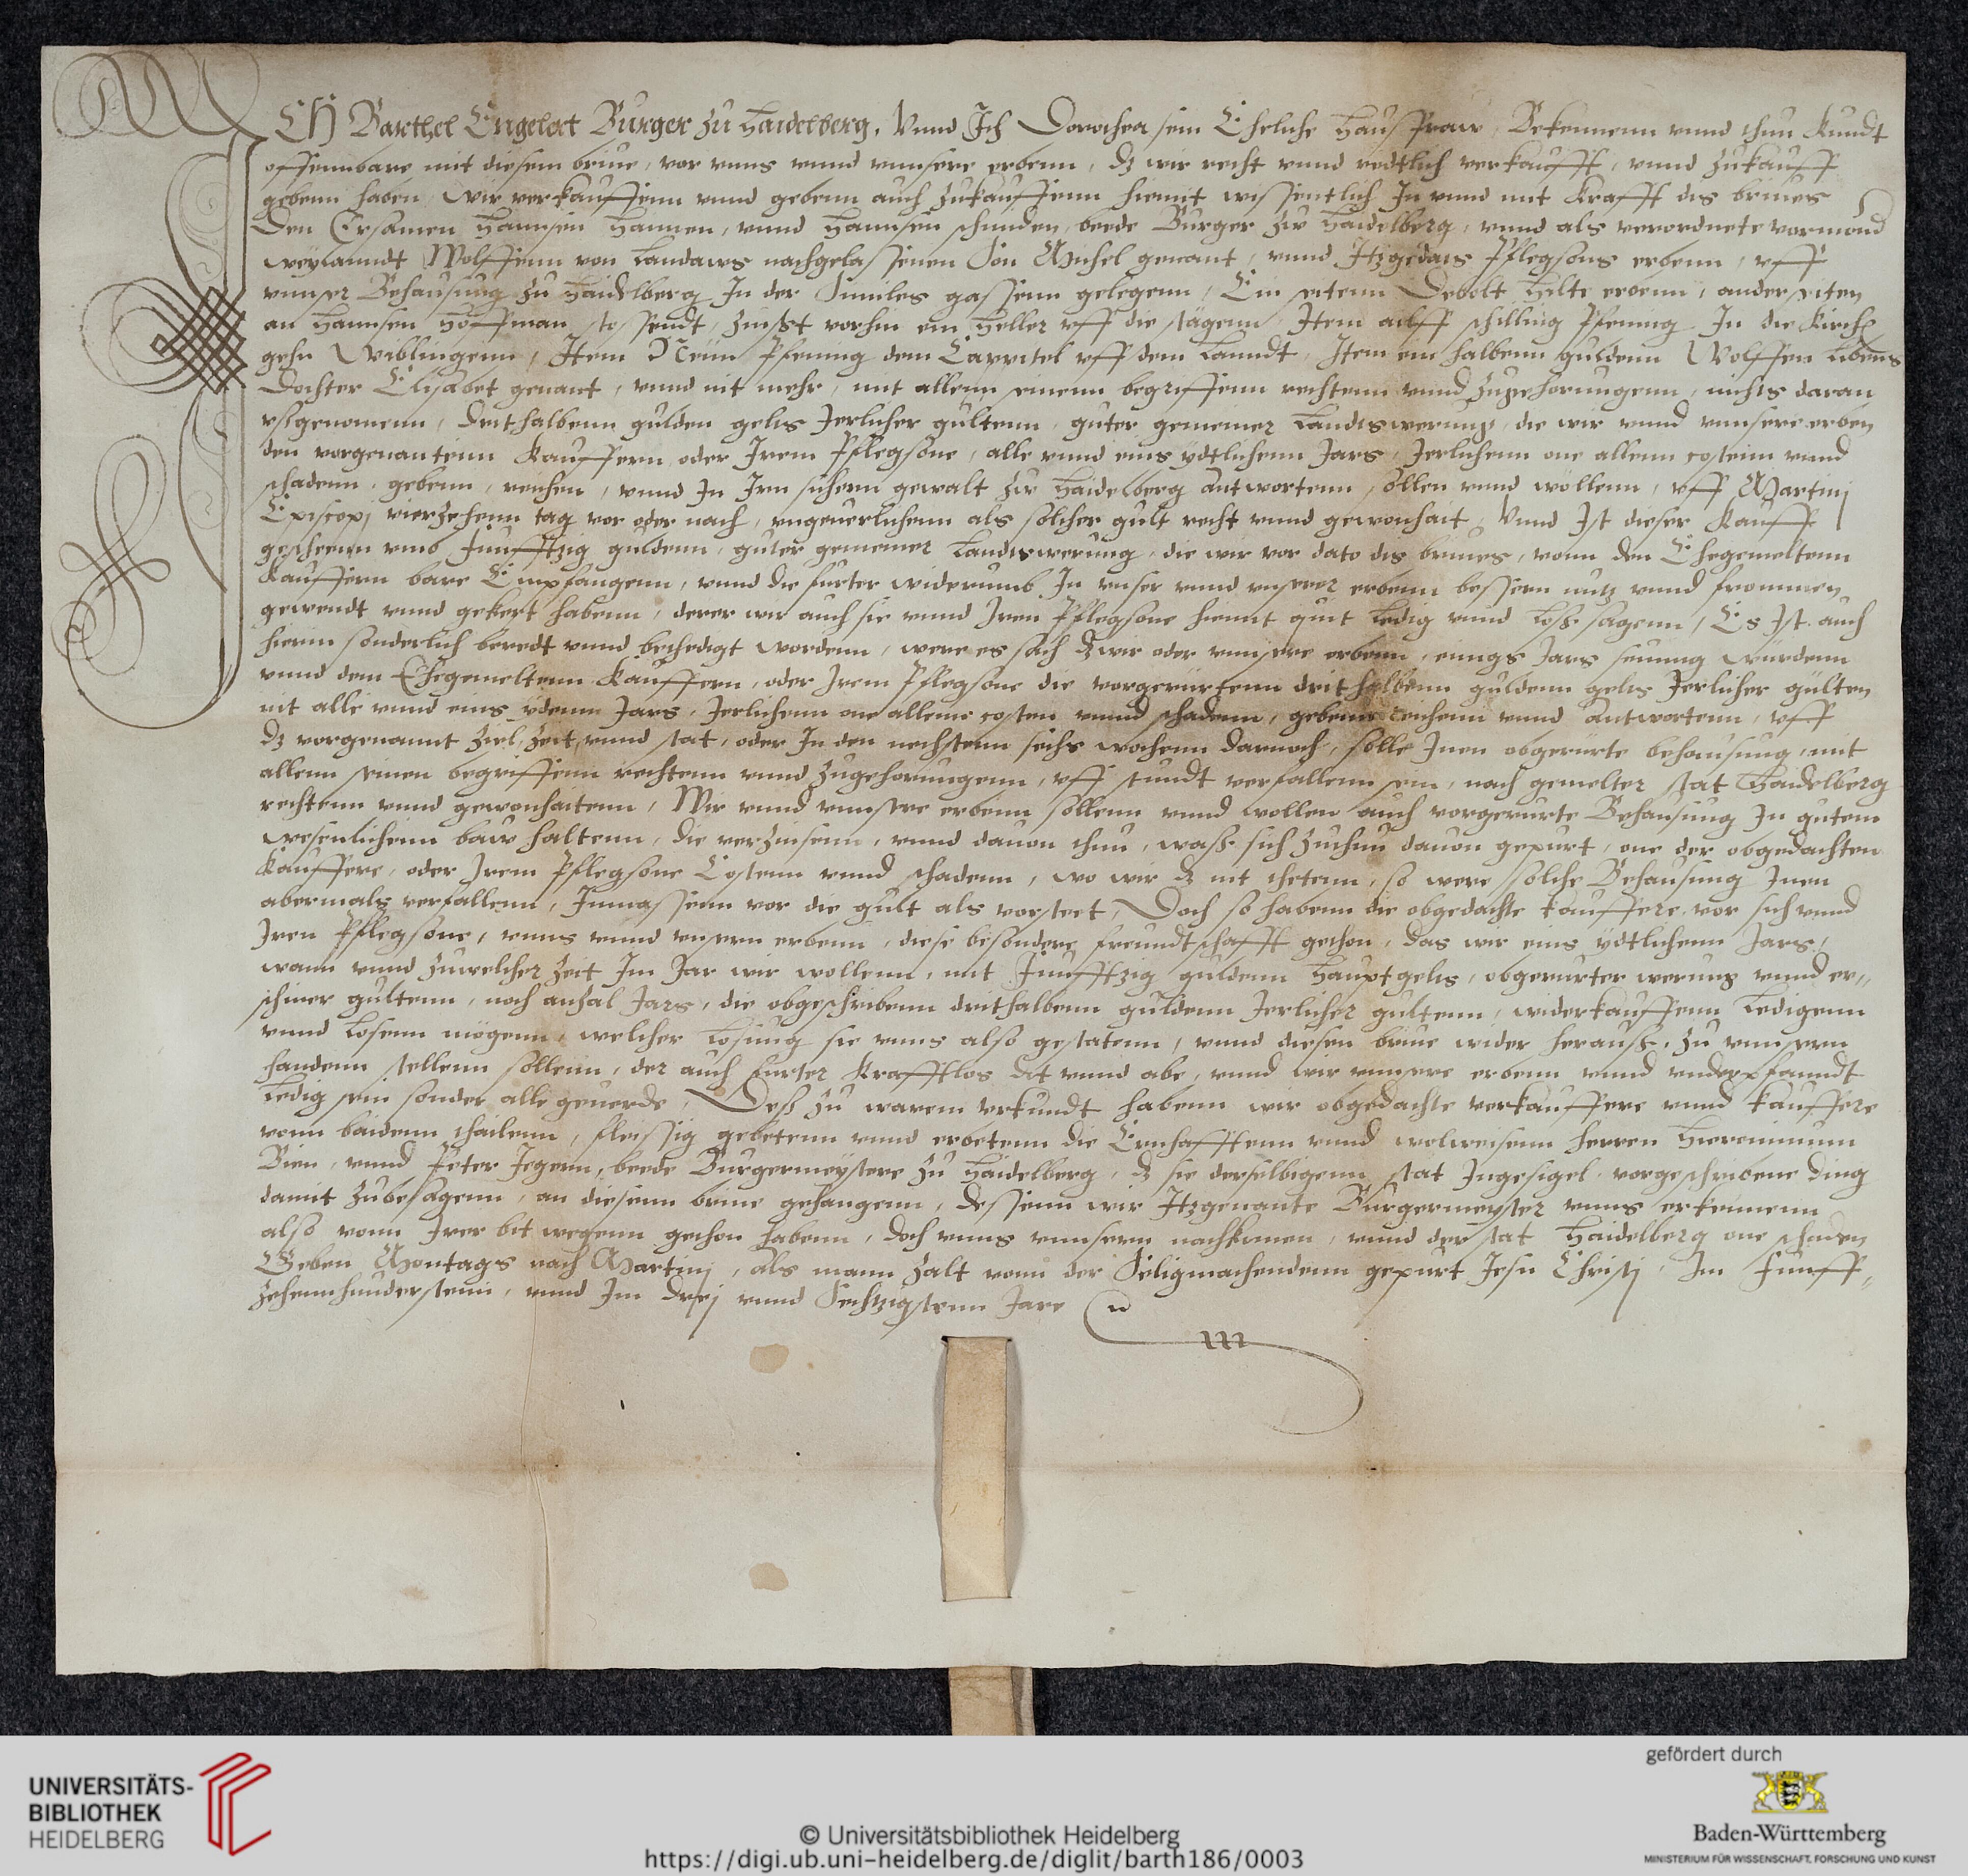 ICH Barthel Engelert Burger zu Haidelberg, Vnnd Ich Dorothea sein Eheliche Hausfraw, Bekennenn vnnd thun Kundt
offennbare mit diesem briue, vor vnns vnnd vnnsere erbenn, dz wir recht vnnd redtlich verkaufft, vnnd zukauff
gebenn haben, Wir verkauffenn vnnd gebenn auch zukauffenn hiemit wissentlich In vnnd mit Krafft dis briues
Den Ersamen Hannsen Hannen, vnnd Hannsen schunden, beede Burger zw Haidelberg, vnnd als verordnete vormond
weylanndt Wolffenn von Landaws nachgelassenen Son Michel genant, vnnd Itzgedats Pflegsons erbenn, vff
vnnser Behausung zu Haidelberg In der Smiles gassenn gelegenn, Ein seitenn Debolt Hilts erbenn, anderseiten
an Hannsen Hoffman stossendt, zinsst vorhin ein Heller vff die stägenn, Item ailff schilling Pfennig In die Kirch
gehn Wiblingenn, Item Neün Pfening dem Cappitel vff dem Lanndt, Item ein halbenn guldenn Wolffen Libenns
Dochter Elisabet genant, vnnd nit mehr, mit allenn seinenn begriffenn rechtenn vnnd zugehorungenn, nichts daran
vsgenomenn, drithalbenn gulden gelts Jerlicher gultenn, guter gemeiner Landtswerung, die wir vnnd vnnsere erben
den vorgenantenn Kauffern oder Irem Pflegsone, alle vnnd eins ydtlichenn Jars, Jerlichenn one allenn costenn vnnd
schadenn, gebenn, reichen, vnnd In Irn sichern gewalt zw Haidelberg Antwortenn, sollen vnnd wöllenn, vff Martinj
Episcopj vierzehenn tag vor oder nach, vngeuerlichenn als solcher gult recht vnnd gewonhait, Vnnd Ist dieser Kauff
gescheenn vmb Funfftzig guldenn, guter gemeiner Landtswerung, die wir vor dato dis briues, vonn den Ehegemeltenn
Kauffern bare Empfangenn, vnnd die furter widerumb In vnser vnnd vnserer erbenn bessern nutz vnnd frommen
gewendt vnnd gekert habenn, derer wir auch sie vnnd Iren Pflegsone hiemit quit ledig vnnd loss sagenn, Es Ist auch
hierin sonderlich beredt vnnd bethedigt wordenn, were es sach dz wir oder vnnsere erbenn, einigs Jars seumig würdenn
vnnd dem Ehegemeltenn Kauffern, oder Irem Pflegsone die vorgerürtenn drithalbenn guldenn gelts Jerlicher gülten
nit alle vnnd eins ydenn Jars, Jerlichenn one allenn costen vnnd schadenn, gebenn reichenn vnnd Antwortenn, vff
dz vorgenannt ziel, zeit, vnnd stat, oder In den nechstenn sechs wochenn darnoch, solle Inen obgerürte behausung, mit
allenn seinen begriffenn rechtenn vnnd zugehorungenn, vff stundt verfallenn sein, nach gemelter stat Haidelberg
rechtenn vnnd gewonhaitenn, Wir vnnd vnnsere erbenn sollenn vnnd wollen auch vorgerurte Behausung In gutem
wesenlichenn baw haltenn, die verzinsenn, vnnd dauon thun, wass sich zuthun dauon gepurt, one der obgedachten
Kauffere, oder Irem Pflegsone Costenn vnnd schadenn, wo wir dz nit thetenn, so were solche Behausung Inen
abermals verfallenn, Inmassenn vor die gult als vorsteet, Doch so habenn die obgedachte kauffere, vor sich vnnd
Iren Pflegsone, vnns vnnd vnsern erbenn, diese besondere freundtschafft gethon, das wir eins ydtlichenn Jars,
wann vnnd zuwelcher zeit Im Jar wir wollenn, mit Funfftzig guldenn Hauptgelts, obgerurter werung vnnd er„
schiner gultenn, noch anzal Jars, die obgeschribenn drithalbenn guldenn Jerlicher gultenn, widerkauffenn Ledigenn
vnnd losenn mögenn, welcher losung sie vnns also gestatenn, vnnd diesen briue wider herauss, zu vnnsern
handenn stellenn sollenn, der auch furter Krafftlos dot vnnd abe, vnnd wir vnnsere erbenn vnnd vnderpfanndt
Ledig sein sonder alle geuerde, Dess zu warem vrkundt habenn wir obgedachte verkauffere vnnd kauffere
vonn baidenn thailenn, fleissig gebetenn vnnd erbetenn die Ernhafftenn vnnd wolweisenn Herren Hieronimum
Bien, vnnd Peter Jegern, beede Burgermeystere zu Haidelberg, dz sie derselbigenn stat Ingesigel vorgeschribene ding
damit zubesagenn, an diesenn briue gehangenn, Dessenn wir Itzgenante Burgermeyster vnns erkennenn
also vonn Irer bit wegenn gethon habenn, doch vnns vnnsern nachkomen, vnnd der stat Haidelberg one schaden
Geben Montags nach Martinj, Als mann zalt vonn der Seligmachendenn gepurt Jesu Christj, Im Funff„
zehennhunderstenn, vnnd Im Drej vnnd Sechtzigstenn Jare
UNIVERSITÄTS-
BIBLIOTHEK
HEIDELBERG
© Universitätsbibliothek Heidelberg
https://digi.ub.uni-heidelberg.de/diglit/barth186/0003
gefördert durch
Baden-Württemberg
MINISTERIUM FÜR WISSENSCHAFT, FORSCHUNG UND KUNST